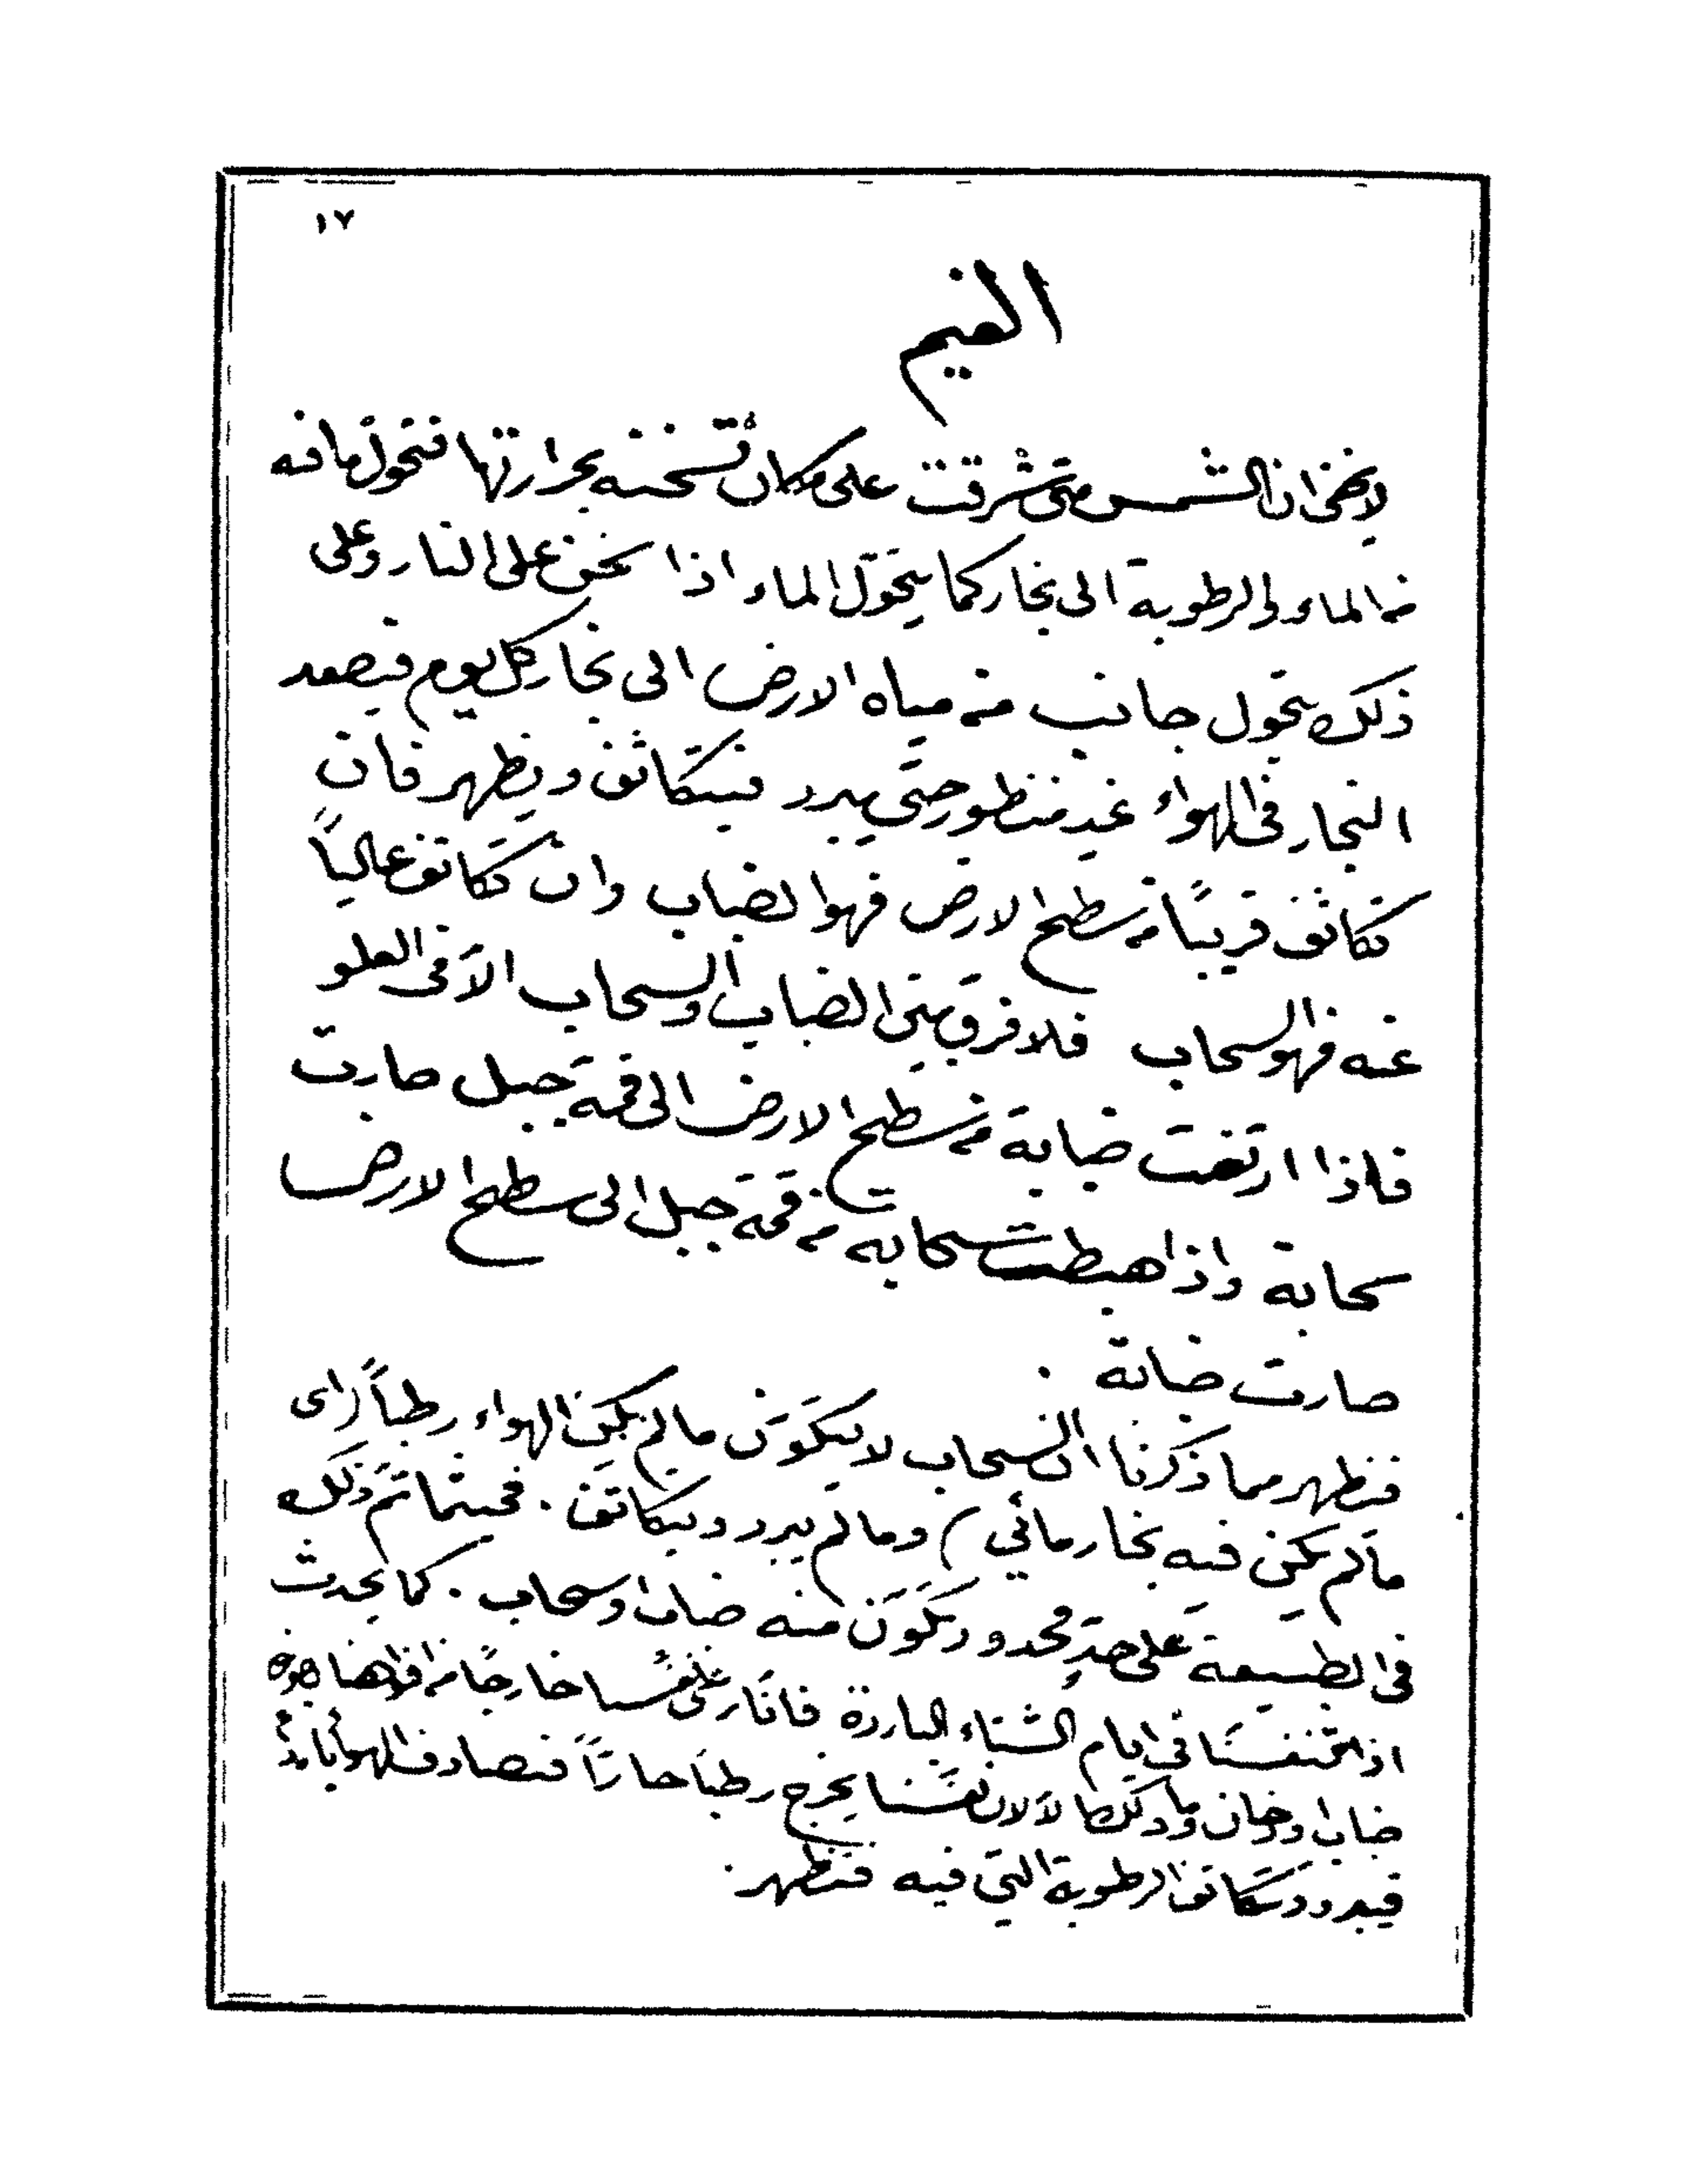 ١٧
الغيم
لا يخفى ان الشمس متى شرقت على مكان تسخنه بحرارتها فتحول ما فيه
من الماء والرطوبة الى بخار كما يتحوّل الماء اذا سخن على النار وعلى
ذلك يتحول جانب من مياه الارض الى بخار كل يوم فيصعد
البخار في الهواء غير منظور حتى يبرد فيتكاثف ويظهر فان
تكاثف قريبًا من سطح الارض فهو الضباب وان تكاثف عاليًا
عنه فهو السحاب فلا فرق بين الضباب والسحاب الّا في العلو
فاذا ارتفعت ضبابة من سطح الارض الى قمة جبل صارت
سحابة واذا هبطت سحابة من قمة جبل الى سطح الارض
صارت ضبابة .
فيظهر مما ذكرنا ان السحاب لا يتكوّن ما لم يكن الهواء رطبًا (اى
ما لم يكن فيه بخار مائي) وما لم يبرد ويتكاثف . فحيثما تمّ ذلك
في الطبيعة على حدٍ محدود تكوّن منه ضباب او سحاب . كما يحدث
اذا تنفسنا في ايام الشتاء الباردة فاننا نرى نفسنا خارجًا من افواهنا
ضباب او دخان وما ذلك الّا لان نفسنا يخرج رطبًا حارًّا فيصادف الهواء باردًا
فيبرد وتتكاثف الرطوبة التي فيه فتظهر .